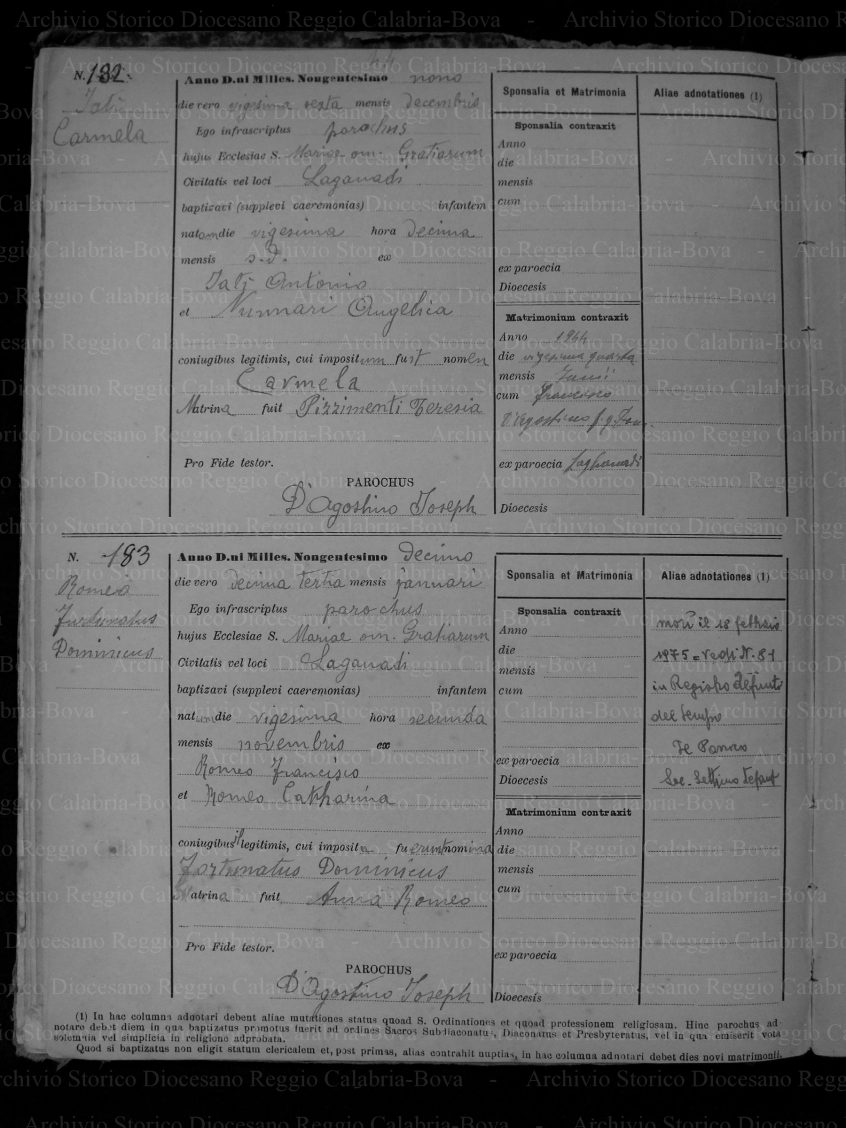 N. 182.
Anno D.ni Milles. Nongentesimo nono
Carmela
die vero vigesima sexta mensis decembris
Ego infrascriptus parochus
hujus Ecclesiae S. Mariae om. Gratiarum
Civitatis vel loci Laganadi
baptizavi (supplevi caeremonias) infantem
natam die vigesima hora decima
mensis s.d. ex
Antonio
et Nunnari Angelica
coniugibus legitimis, cui impositum fuit nomen
Carmela
Matrina fuit Pizzimenti Teresia
Pro Fide testor.
PAROCHUS
D'Agostino Joseph
Sponsalia et Matrimonia
Sponsalia contraxit
Anno
die
mensis
cum
ex paroecia
Dioecesis
Matrimonium contraxit
Anno 1944
die vigesima quarta
mensis Junii
cum Francisco
D'Agostino
ex paroecia
Dioecesis
Aliae adnotationes (1)
N. 183
Romeo
Furtunatus
Dominicus
Anno D.ni Milles. Nongentesimo decimo
die vero Decima tertia mensis januari
Ego infrascriptus parochus
hujus Ecclesiae S. Mariae om. Gratiarum
Civitatis vel loci Laganadi
baptizavi (supplevi caeremonias) infantem
natum die vigesima hora secunda
mensis novembris ex
Romeo Francisco
et Romeo Catharina
coniugibus legitimis, cui imposita fuerunt nomina
Fortunatus Dominicus
Matrina fuit Anna Romeo
Pro Fide testor.
PAROCHUS
D'Agostino Joseph
Sponsalia et Matrimonia
Sponsalia contraxit
Anno
die
mensis
cum
ex paroecia
Dioecesis
Matrimonium contraxit
Anno
die
mensis
cum
ex paroecia
Dioecesis
Aliae adnotationes (1)
morì il 18 febbraio
1975 = Vedi N. 81
in Registro defunti
del tempo
(1) In hac columna adnotari debent aliae mutationes status quoad S. Ordinationes et quoad professionem religiosam. Hinc parochus ad
notare debet diem in qua baptizatus promotus fuerit ad ordines Sacros Subdiaconatus, Diaconatus et Presbyteratus, vel in qua emiserit vota
solemnia vel simplicia in religione adprobata.
Quod si baptizatus non eligit statum clericalem et, post primas, alias contrahit nuptias, in hac columna adnotari debet dies novi matrimonii.
Archivio Storico Diocesano Reggio Calabria-Bova